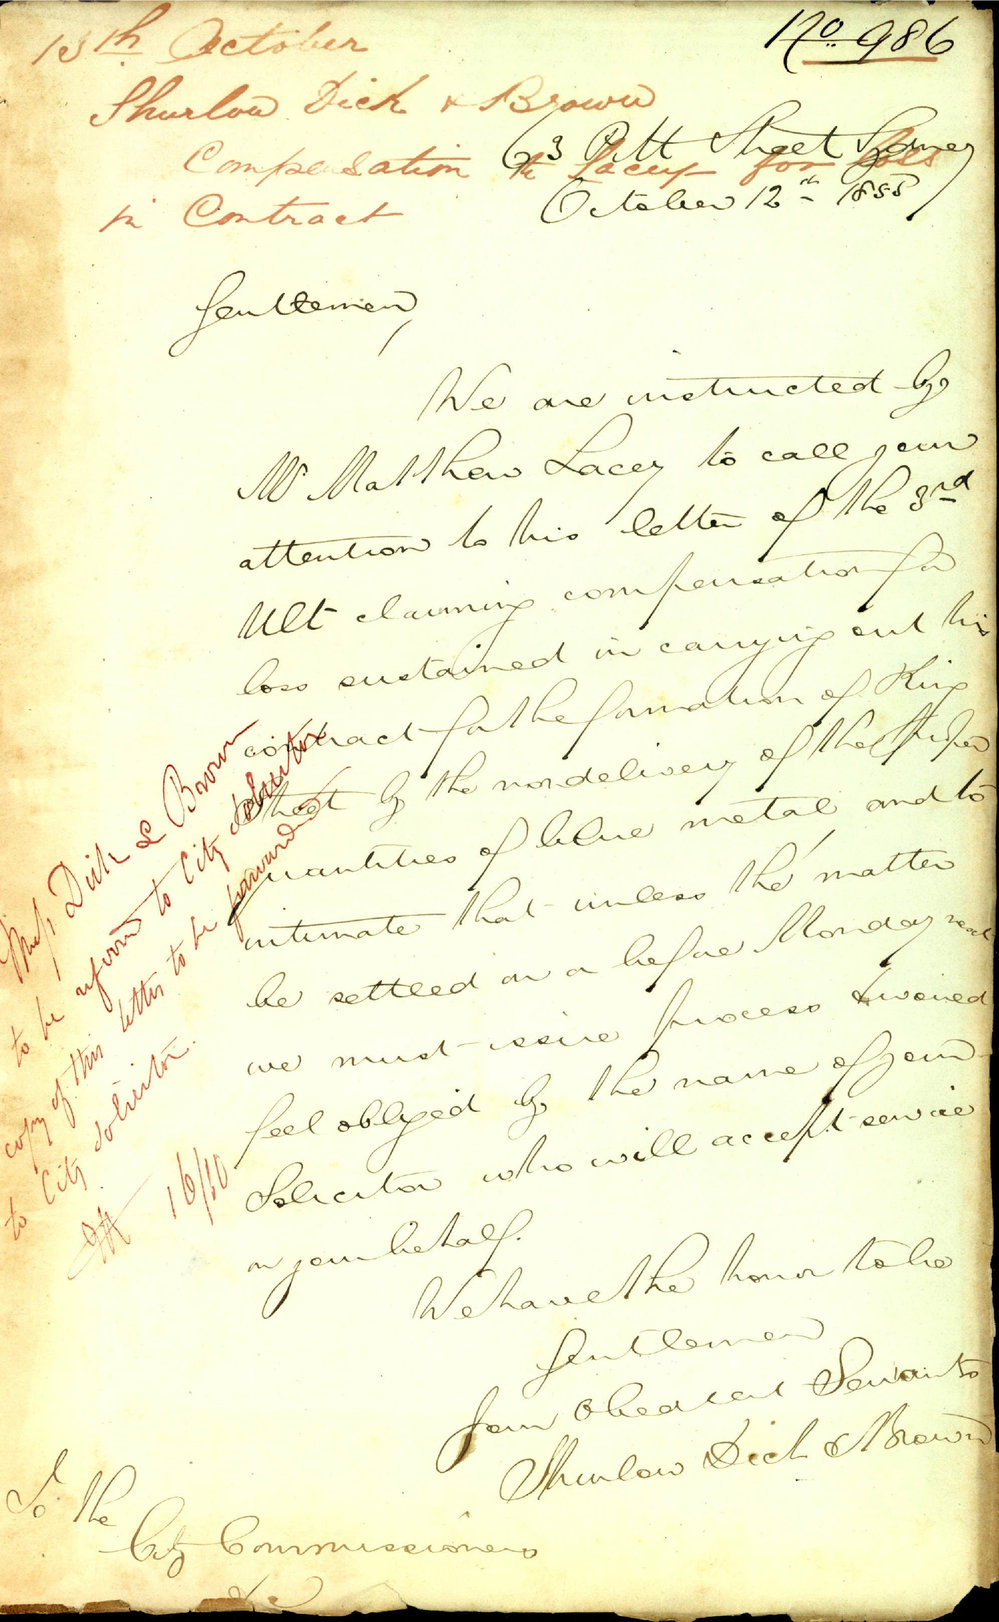 13th October
No. 986
Thurlow Dick & Brown
Compensation to Lacey for loss
in Contract
63 Pitt Street Sydney
October 12th 1855
Gentlemen,
We are instructed by
Mr Matthew Lacey to call your
attention to his letter of the 3rd
Ult claiming compensation for
loss sustained in carrying out his
contract for the formation of King
Street by the nondelivery of the proper
quantities of blue metal and to
intimate that unless the matter
be settled on or before Monday next
we must issue process & would
feel obliged by the name of your
Solicitor who will accept service
on your behalf.
We have the honor to be
Gentlemen
Your Obedient Servants
Thurlow Dick & Brown
To the
City Commissioners
&c
Messrs Dick & Brown
to be referred to City Solicitor
copy of this letter to be forwarded
to City Solicitor.
16/10